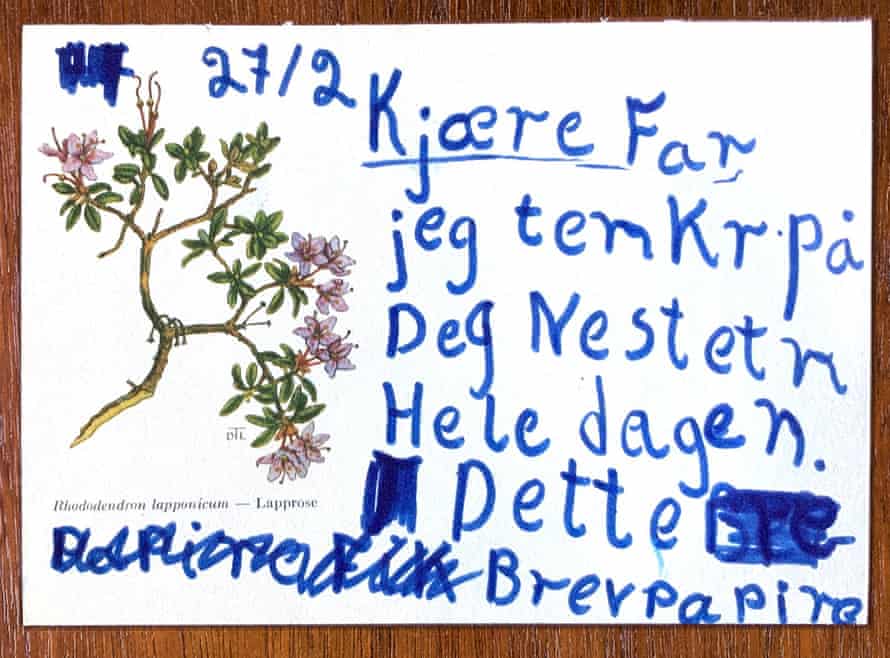 27/2
Kjære Far
jeg tenKr på
Deg Nestetn
Hele dagen.
Dette
Brevpapire
Rhododendron lapponicum — Lapprose